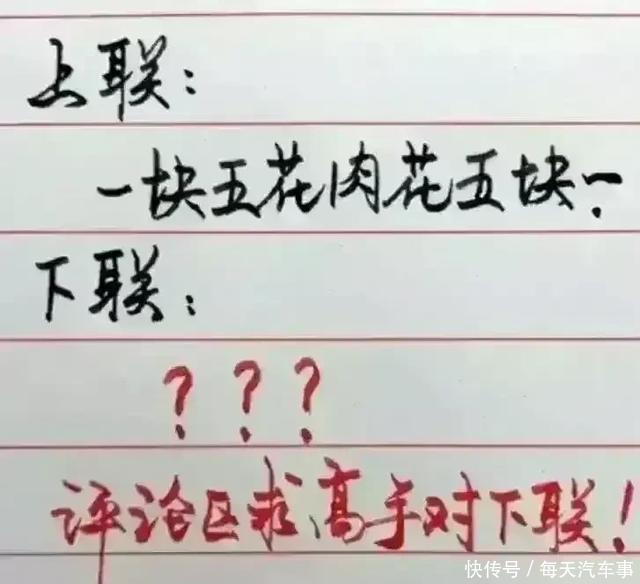 上联：
一块五花肉花五块一.
下联：
？？？
评论区求高手对下联！
快传号／每天汽车事